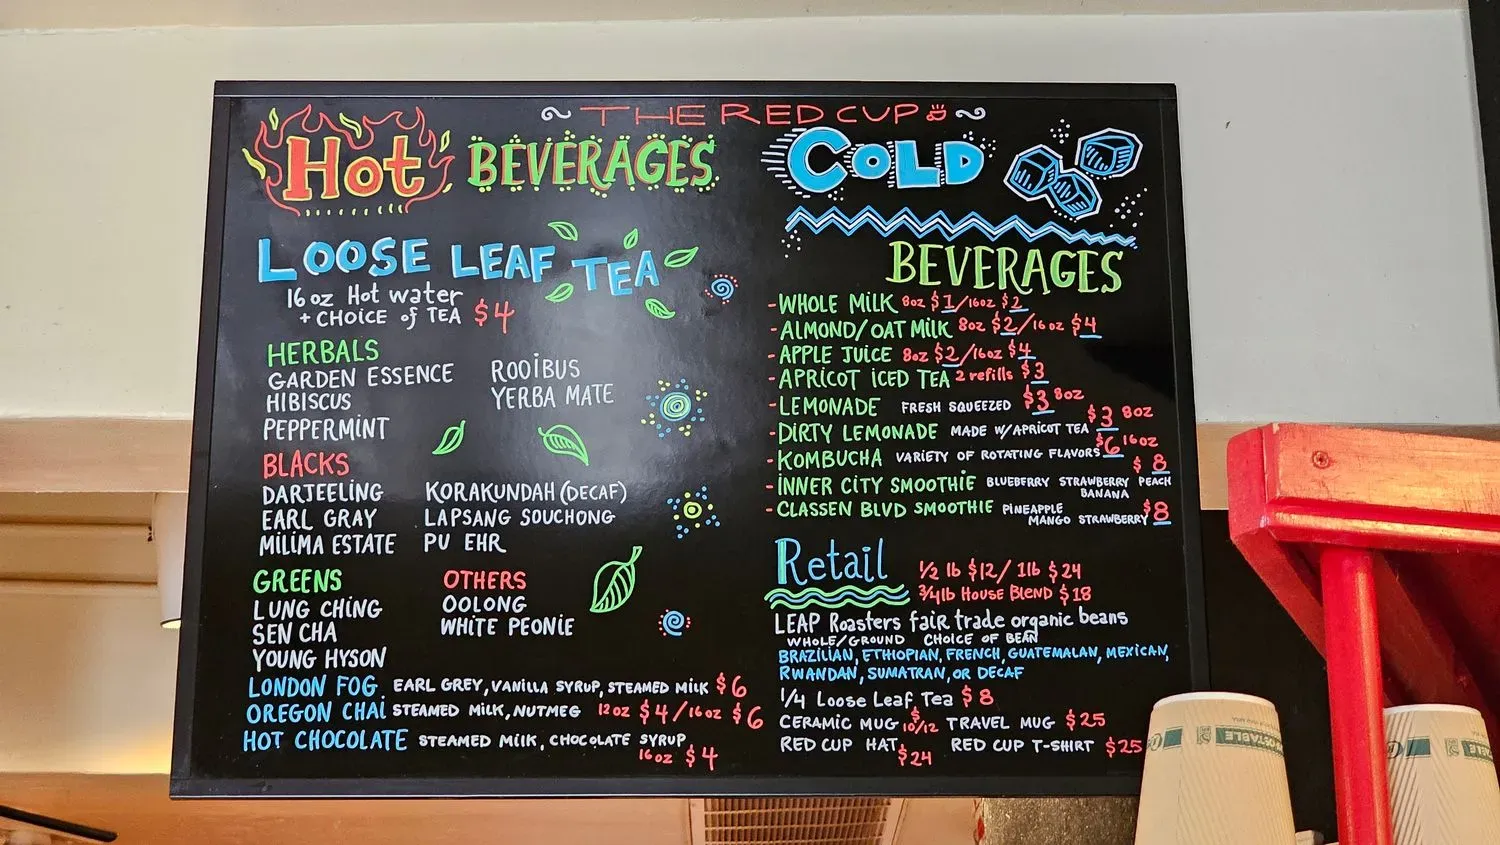 THE RED CUP
Hot BEVERAGES
LOOSE LEAF TEA
16 oz Hot water
+ CHOICE of TEA $4
HERBALS
GARDEN ESSENCE
HIBISCUS
PEPPERMINT
ROOIBUS
YERBA MATE
BLACKS
DARJEELING
EARL GRAY
MILIMA ESTATE
KORAKUNDAH (DECAF)
LAPSANG SOUCHONG
PU EHR
GREENS
LUNG CHING
SEN CHA
YOUNG HYSON
OTHERS
OOLONG
WHITE PEONIE
LONDON FOG EARL GREY, VANILLA SYRUP, STEAMED MILK $6
OREGON CHAI STEAMED MILK, NUTMEG 12oz $4/16oz $6
HOT CHOCOLATE STEAMED MILK, CHOCOLATE SYRUP
16oz $4
COLD
BEVERAGES
- WHOLE MILK 8oz $1/16oz $2
- ALMOND/OAT MILK 8oz $2/16oz $4
- APPLE JUICE 8oz $2/16oz $4
- APRICOT ICED TEA 2 refills $3
- LEMONADE FRESH SQUEEZED $3 8oz
- DIRTY LEMONADE MADE W/APRICOT TEA $3 8oz
- KOMBUCHA VARIETY OF ROTATING FLAVORS $6 16oz
- INNER CITY SMOOTHIE BLUEBERRY STRAWBERRY PEACH $8
BANANA
- CLASSEN BLVD SMOOTHIE PINEAPPLE
MANGO STRAWBERRY $8
Retail
1/2 lb $12/ 1lb $24
3/4lb House Blend $18
LEAP Roasters fair trade organic beans
WHOLE/GROUND CHOICE OF BEAN
BRAZILIAN, ETHIOPIAN, FRENCH, GUATEMALAN, MEXICAN,
RWANDAN, SUMATRAN, OR DECAF
1/4 Loose Leaf Tea $8
CERAMIC MUG $10/12 TRAVEL MUG $25
RED CUP HAT $24 RED CUP T-SHIRT $25